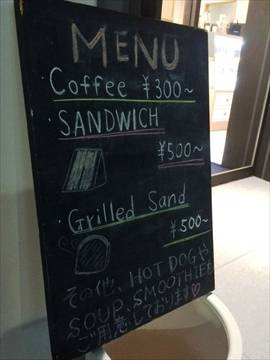 MENU
・Coffee ¥300~
・SANDWICH
¥500~
・Grilled Sand
¥500~
その他、HOT DOGや
SOUP, SMOOTHIEも
ご用意しております♡